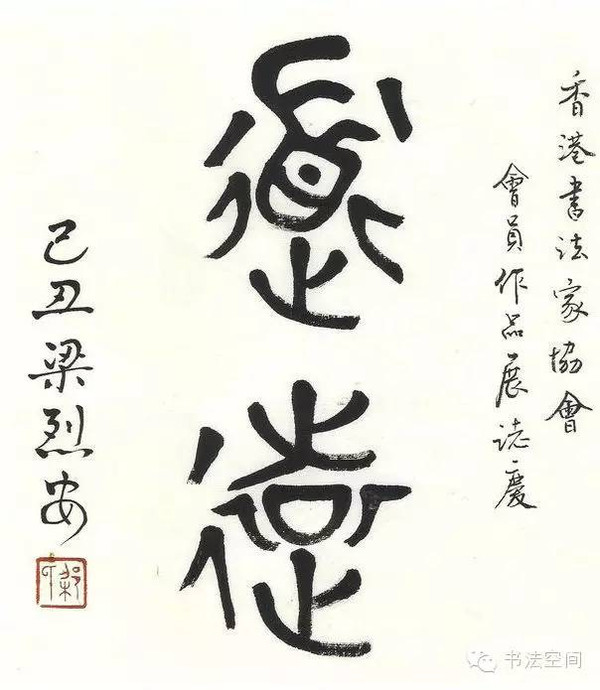 香港書法家協會
會員作品展誌慶
道衛
己丑梁烈安
书法空间